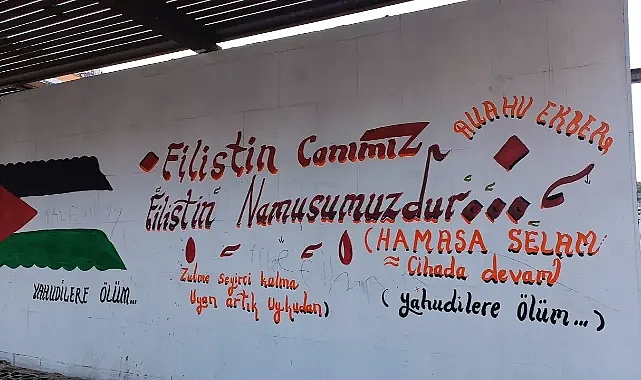 ALLAHU EKBER
Filistin Canımız
Filistin Namusumuzdur...
(HAMASA SELAM
Cihada devam)
Zulme seyirci kalma
Uyan artık Uykudan)
YAHUDİLERE ÖLÜM...
(yahudilere Ölüm...)